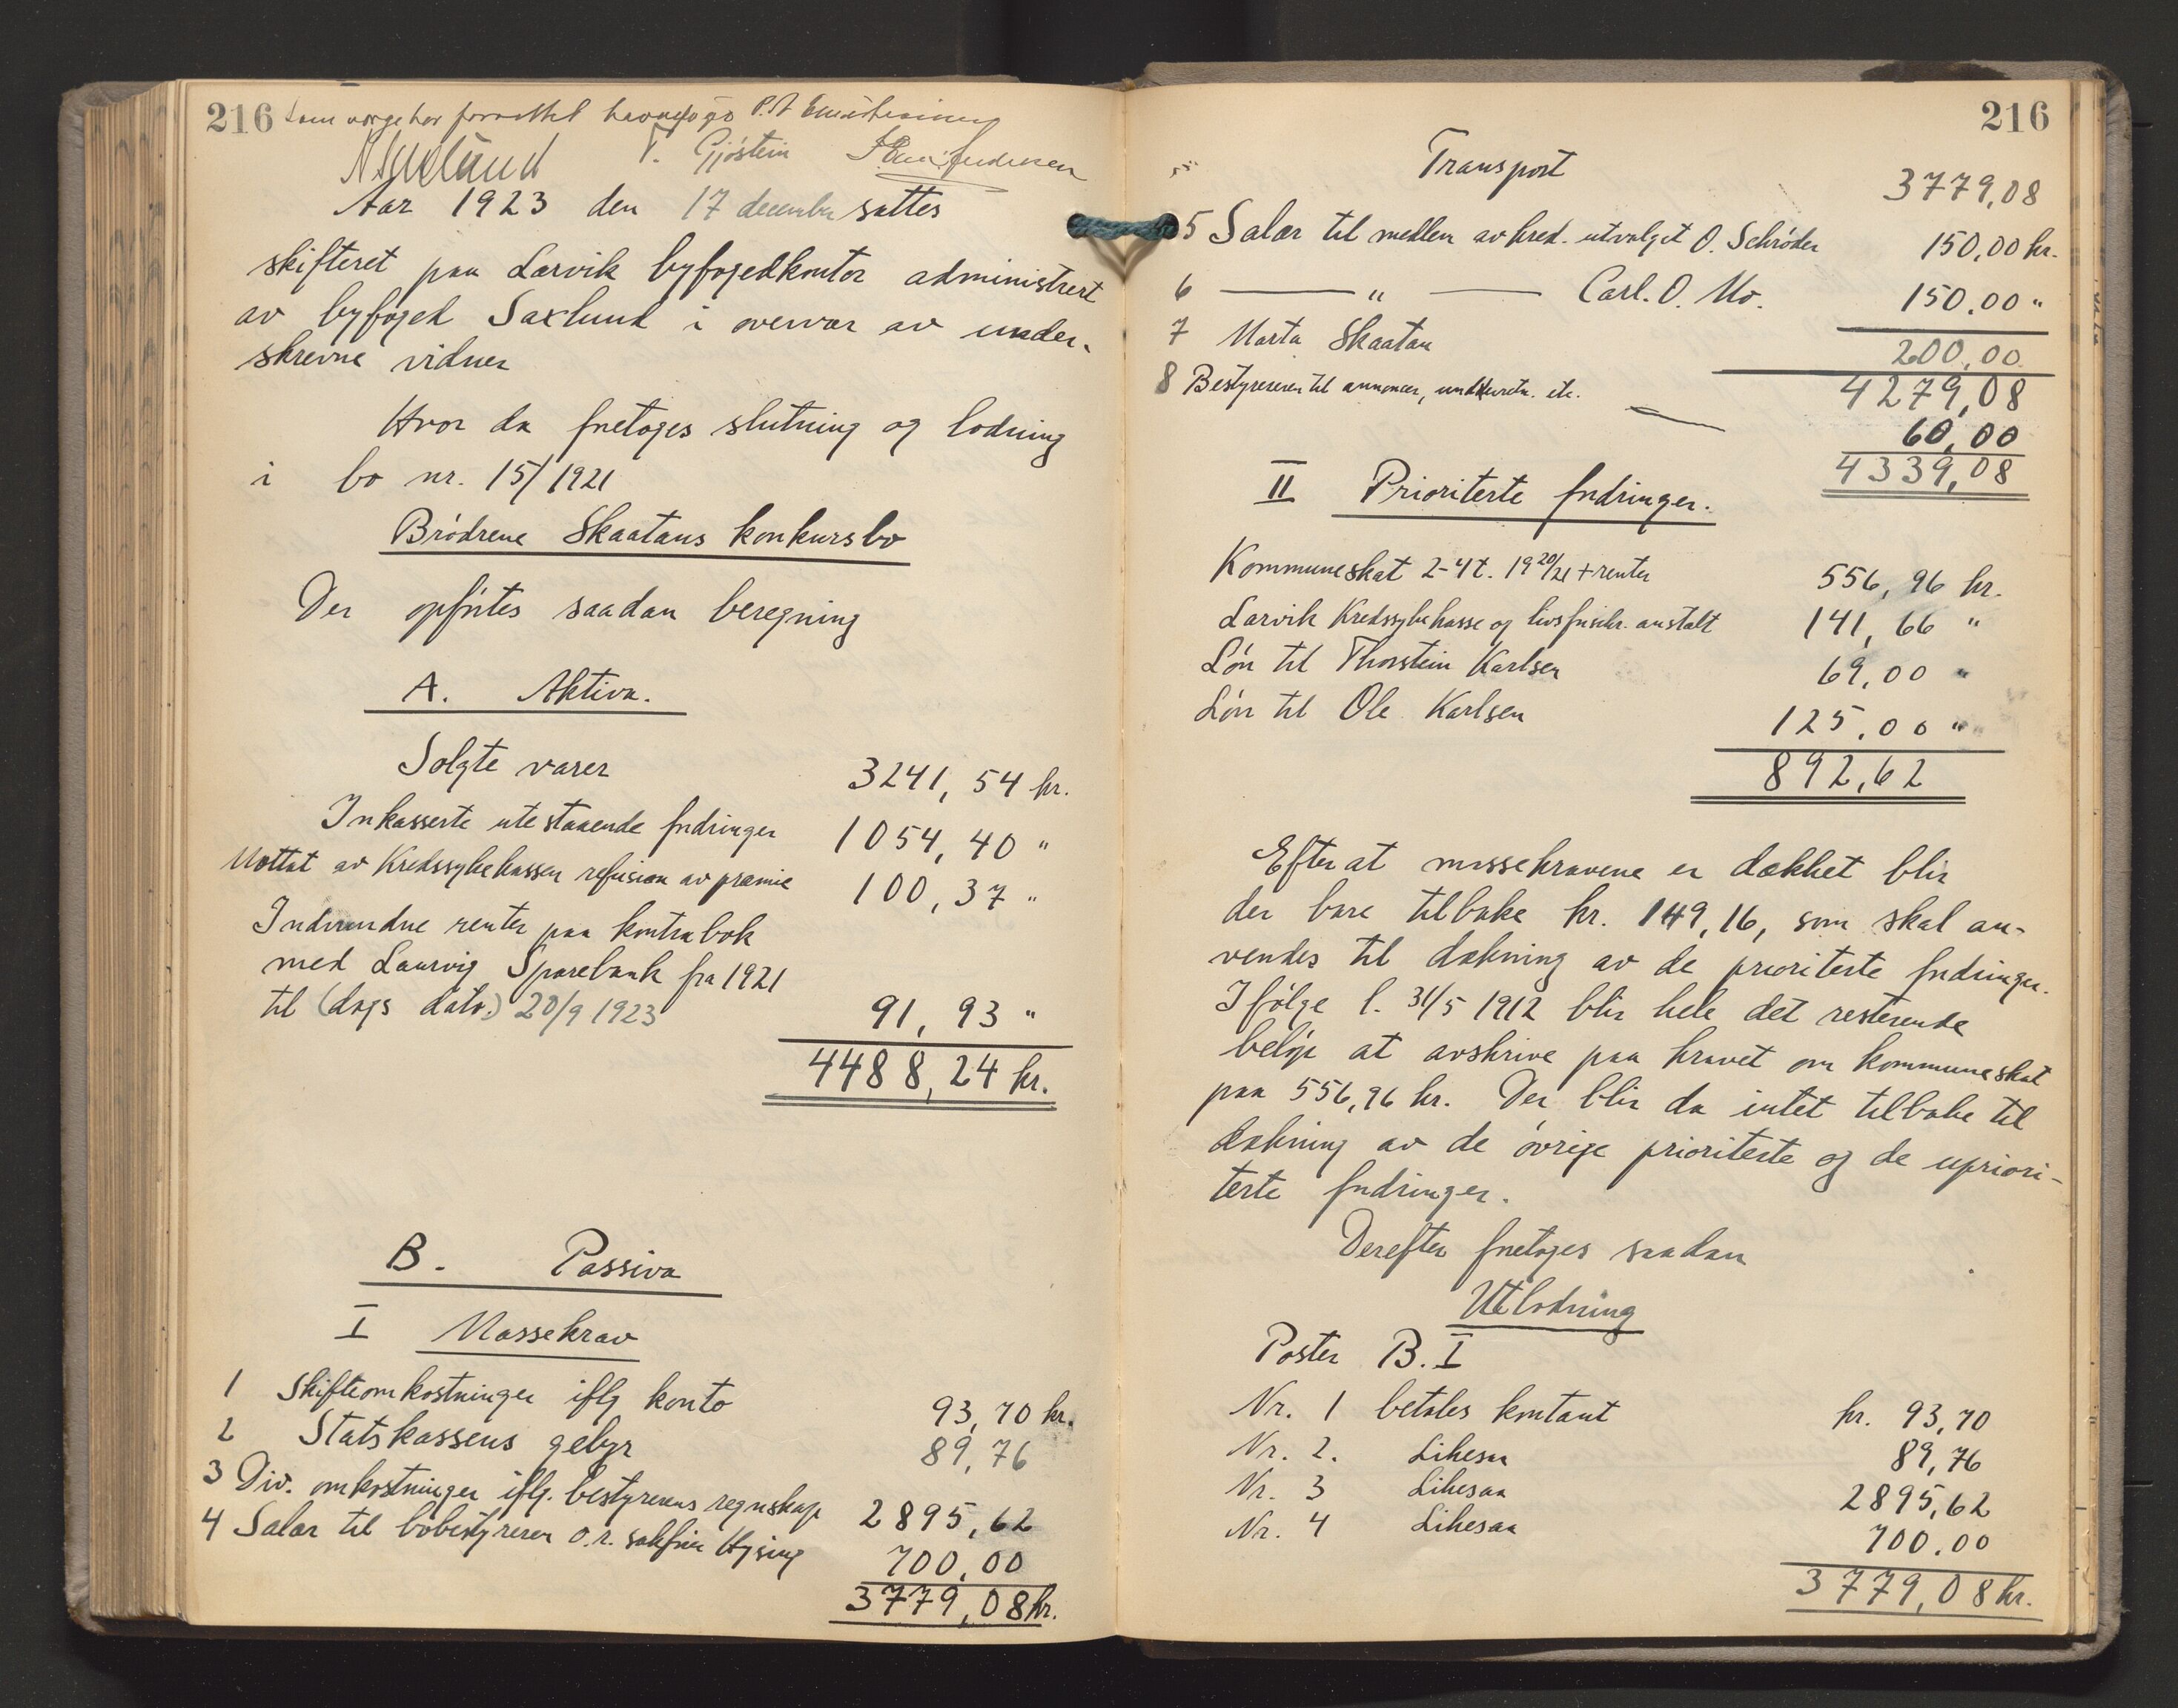 216 Som verge har formottet havnefoged P.A.
N Saxlund T. Gjøstein
Aar 1923 den 17 december sattes
skifteret paa Larvik byfogedkontor administrert
av byfoged Saxlund i overvær av under-
skrevne vidner
Hvor da foretoges slutning og lodning
i bo nr. 15/1921
Brødrene Skaatans konkursbo
Der opførtes saadan beregning
A. Aktiva.
Solgte varer 3241,54 kr.
Inkasserte utestaaende fordringer 1054,40 "
Mottat av Kredssykekassen refusion av præmie 100,37 "
Indvundne renter paa kontrabok
med Laurvig Sparebank fra 1921
til (dags dato.) 20/9 1923 91,93 "
4488,24 kr.
B. Passiva
I Massekrav
1 Skifteomkostninger iflg konto 93,70 kr.
2 Statskassens gebyr 89,76
3 Div. omkostninger iflg. bestyrerens regnskap 2895,62
4 Salær til bobestyreren o.r. sakfører Hysing 700,00
3779,08 kr.
216
Transport 3779,08
5 Salær til medlem av kred. utvalget O. Schrøder 150,00 kr.
6 — " — Carl. O. Mo. 150,00 "
7 Marta Skaatan 200,00
4279,08
8 Bestyreren til annoncer, undkuretn. etc. 60,00
4339,08
II Prioriterte fordringer.
Kommuneskat 2-4 t. 1920/21 + renter 556,96 kr.
Larvik Kredssykekasse og livsforsikr. anstalt 141,66 "
Løn til Thorstein Karlsen 69,00 "
Løn til Ole Karlsen 125,00 "
892,62
Efter at massekravene er dækket blir
der bare tilbake kr. 149,16, som skal an-
vendes til dækning av de prioriterte fordringer.
Ifølge l. 31/5 1912 blir hele det resterende
beløp at avskrive paa kravet om kommuneskat
paa 556,96 kr. Der blir da intet tilbake til
dækning av de øvrige prioriterte og de upriori-
terte fordringer.
Derefter foretoges saadan
Utlodning
Poster B. I
Nr. 1 betales kontant kr. 93,70
Nr. 2. Likesaa 89,76
Nr. 3 Likesaa 2895,62
Nr. 4 Likesaa 700.00
3779,08 kr.